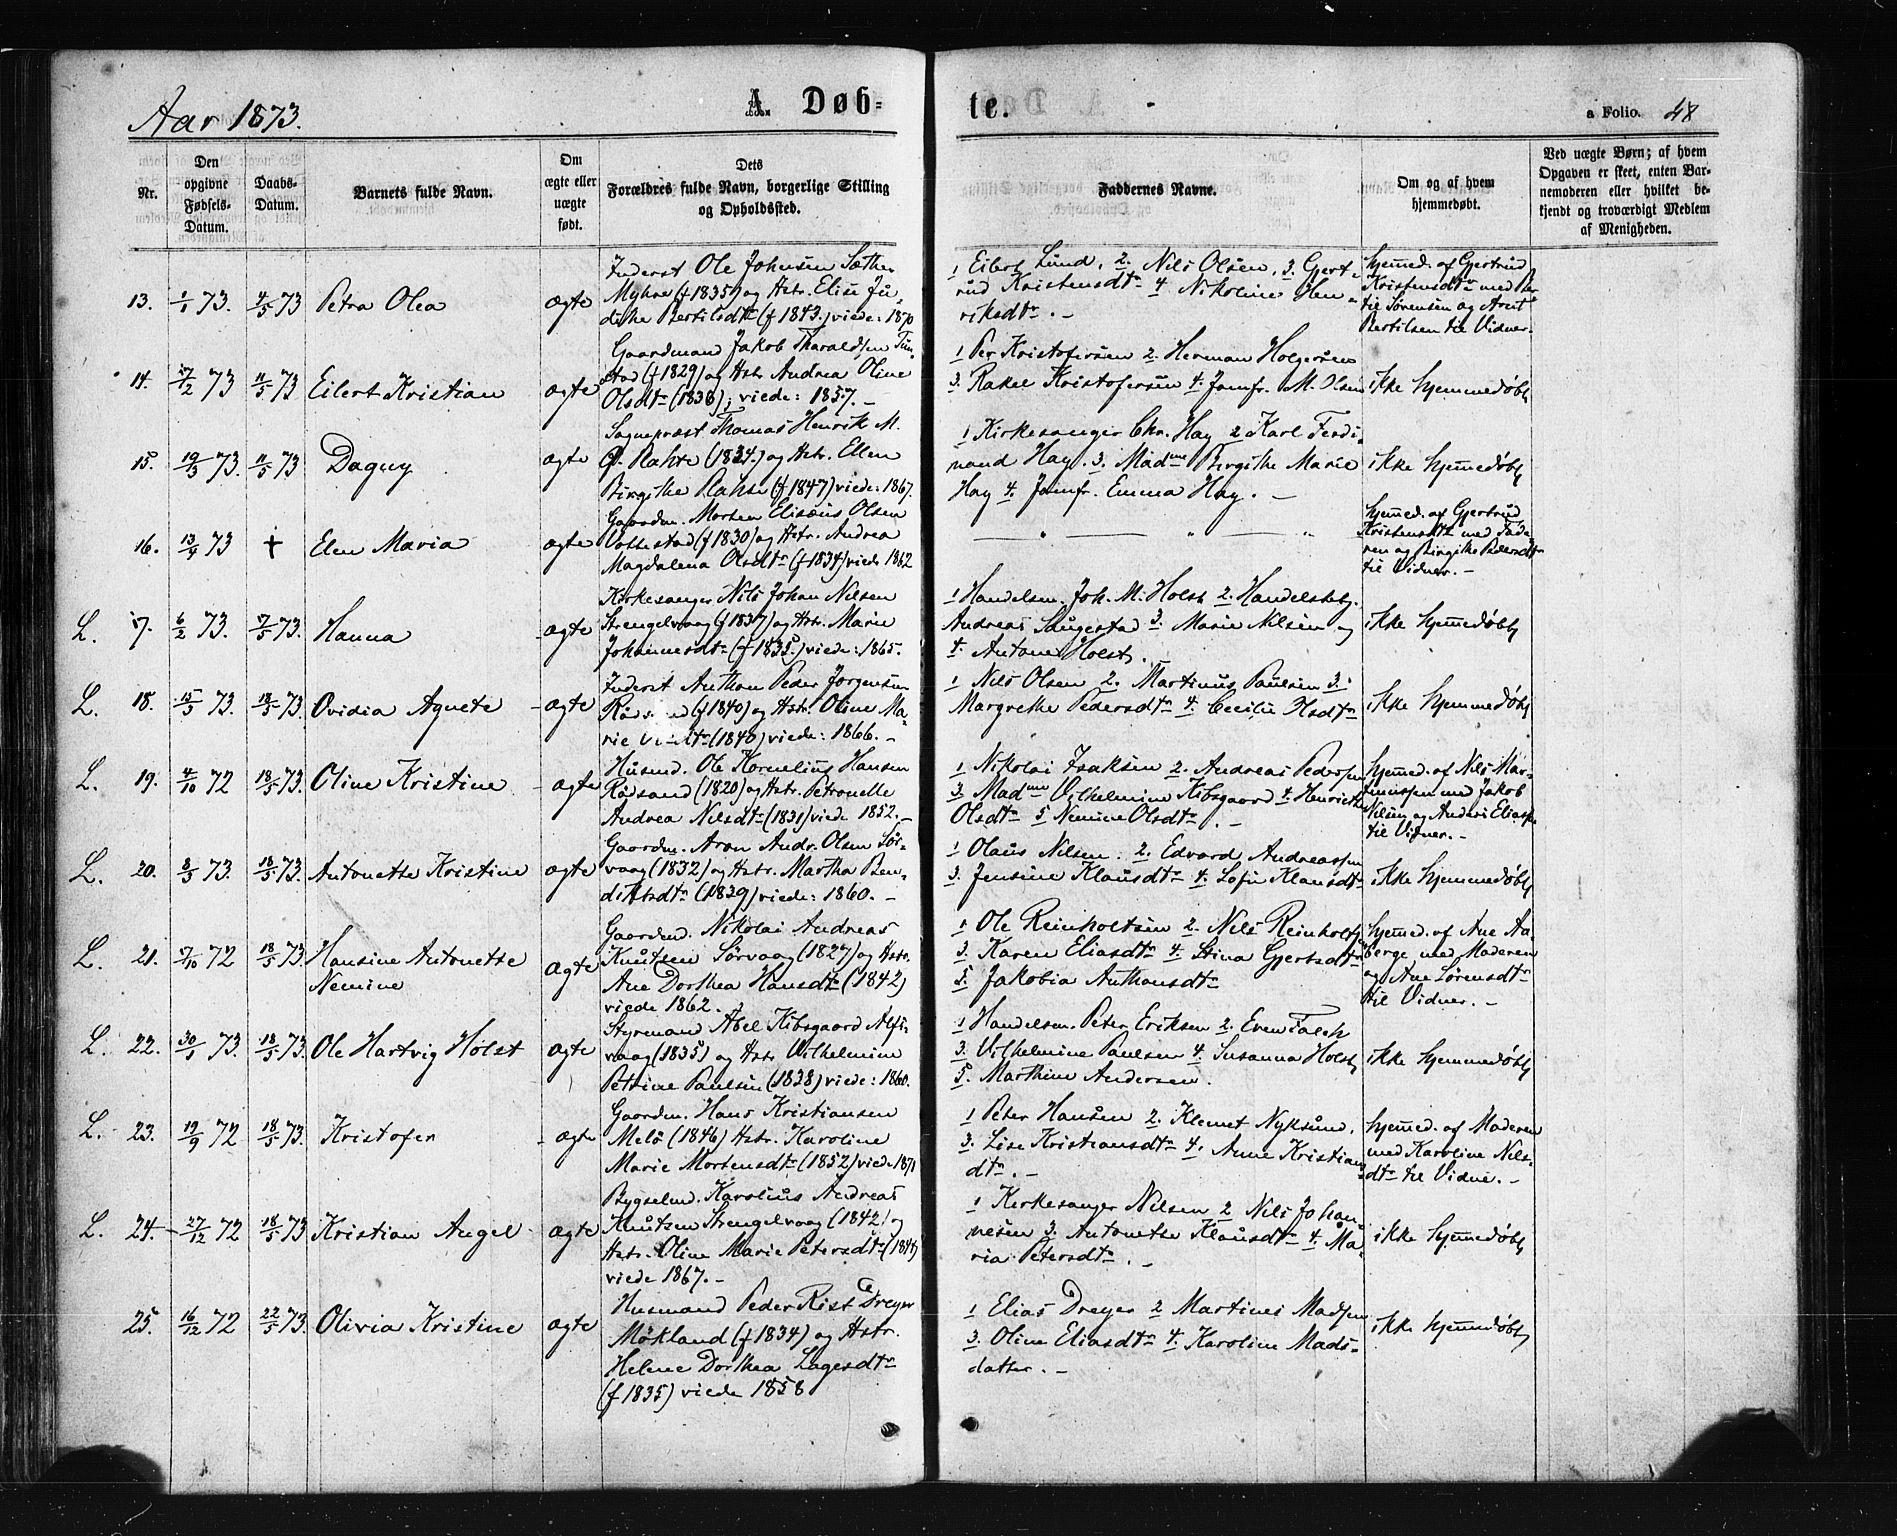 Aar 1873.
A. Døb-
te.
a Folio. 48
Nr.
Den opgivne Fødsels-Datum.
Daabs-Datum.
Barnets fulde Navn.
Om ægte eller uægte født.
Dets Forældres fulde Navn, borgerlige Stilling og Opholdssted.
Faddernes Navne.
Om og af hvem hjemmedøbt.
Ved uægte Børn; af hvem Opgaven er skeet, enten Barnemoderen eller hvilket bekjendt og troværdigt Medlem af Menigheden.
13. 1/1 73. 4/5 73 Petra Olea ægte
Inderst Ole Johnsen Sæther
Myhre (f 1835) og Hstr. Elise Ju-
dithe Bertilsdtr (f 1843.) viede: 1870
1 Eilert Lund, 2. Nils Olsen, 3. Gjert-
rud Kristensdtr 4 Nikoline Hen-
riksdtr. -
hjemmed. af Gjertrud
Kristensdtr med
til Sørensen og
Bertilsen til Vidner.
14. /2 73 11/5 73 Eilert Kristian ægte
Gaardmand Jakob Tharaldsen Tun-
stad (f 1829) og Hstr Andrea Oline
Olsdtr (1838); viede: 1857. -
1 Per Kristofersen 2. Herman Holgersen
3. Rakel Kristofersen 4. Jomfr. M. Olsen
ikke hjemmedøbt
15. 19/3 73. 11/5 73 Dagny ægte
Sognepræst Thomas Henrik M.
Q. Rahrs (1834.) og Hstr. Ellen
Birgithe Rahrs (f 1847) viede: 1867.
1 Kirkesanger Chr. Hay 2 Karl Ferdi-
nand Hay. 3. Madme Birgithe Marie
Hay 4. Jomfr. Emma Hay. -
ikke hjemmedøbt
16. 13/4 73 † Elen Maria ægte
Gaardm. Morten Elisæus Olsen
Vottestad (f 1830) og Hstr. Andrea
Magdalena Olsdtr (f 1834) viede 1862
hjemmed. af Gjertrud
Kristensdtr med Fade-
ren og Birgithe Pedersdtr
til Vidner. -
L. 17. 6/2 73. /5 73. Hanna ægte
Kirkesanger Nils Johan Nilsen
Strengelvaag (f 1837) og Hstr. Marie
Johannesdtr (f 1835.) viede: 1865.
1 Handelsm. Joh. M. Holst 2. Handelsbetj.
Andreas Saugestad 3. Marie Nilsen og
4. Antone Holst.
ikke hjemmedøbt
L. 18. 15/3 73. 18/5 73 Ovidia Agnete - ægte
Inderst Anthon Peder Jørgensen
(f 1840) og Hstr. Oline Ma-
rie (1840) viede: 1866. -
1 Nils Olsen 2. Martinus Paulsen 3.
Margrethe Pedersdtr 4. Cecilie Olsdtr
ikke hjemmedøbt
L. 19. 4/10 72 18/5 73. Oline Kristine - ægte
Husmd. Ole Kornelius Hansen
Rødsand (1820) og Hstr. Petronelle
Andrea Nilsdtr (1831) viede 1852. -
1 Nikolai Isaksen 2. Andreas Pedersen
3. Madme Vilhelmine Kibsgaard 4. Henriette
Olsdtr 5 Nemine Olsdtr. -
hjemmed. af Nils Mar-
med Jakob
Nilsen og Anders Eliassen
til Vidner. -
L. 20. 8/3 73. 18/5 73. Antonette Kristine ægte
Gaardm. Aron Andr. Olsen Sør-
vaag (1832) og Hstr. Martha Ben-
diktsdtr (1839) viede: 1860. -
1 Olaus Nilsen. 2. Edvard Andreassen
3. Jensine Klausdtr 4. Sofie Klausdtr
ikke hjemmedøbt
L. 21. /10 72 18/5 73. Hansine Antonette
Nemine ægte
Gaardmd. Nikolai Andreas
Knutsen Sørvaag (1827) og Hstr.
Ane Dorthea Hansdtr (1842)
viede 1862.
1 Ole Reinholtsen 2. Nils Reinholtsen
3. Karen Eliasdtr 4. Stina Gjertsdtr
5. Jakobia Anthonsdtr
hjemmed. af Ane Aa-
berge med Moderen
og Ane Sørensdtr
til Vidner. -
L. 22. 30/1 73. 18/5 73. Ole Hartvig Holst ægte
Styrmand Abel Kibsgaard Alfs-
vaag (1835) og Hstr Vilhelmine
Petrine Paulsen (1838) viede: 1860.
1 Handelsm. Peter Eriksen 2. Even Falch
3. Vilhelmine Paulsen 4. Susanna Holst
5. Marthine Andersen.
ikke hjemmedøbt
L. 23. 19/9 72 18/5 73. Kristofer - ægte
Gaardm. Hans Kristiansen
Melø (1846) Hstr. Karoline
Marie Mortensdtr (1852) viede 1871
1 Peter Hansen 2. Klemet Nyksund.
3. Lise Kristiansdtr 4. Anne Kristians-
dtr. -
hjemmed. af Moderen
med Karoline Nils-
dtr til Vidne. -
L. 24. 27/12 72 18/5 73 Kristian Angel ægte
Bygselmd. Karolius Andreas
Knutsen Strengelvaag (1842) og
Hstr. Oline Marie Petersdtr (1844)
viede 1867. -
1 Kirkesanger Nilsen 2 Nils Johan-
nesen 3. Antonette Klausdtr 4. Ma-
ria Petersdtr. -
ikke hjemmedøbt
25. 16/12 72 22/5 73. Olivia Kristine ægte
Husmand Peder Rist Dreyer
Møkland (f 1834) og Hstr.
Helene Dorthea Lagesdtr
(f 1835) viede 1858
1 Elias Dreyer 2 Martines Madsen
3. Oline Eliasdtr 4. Karoline Mads-
datter. -
ikke hjemmedøbt